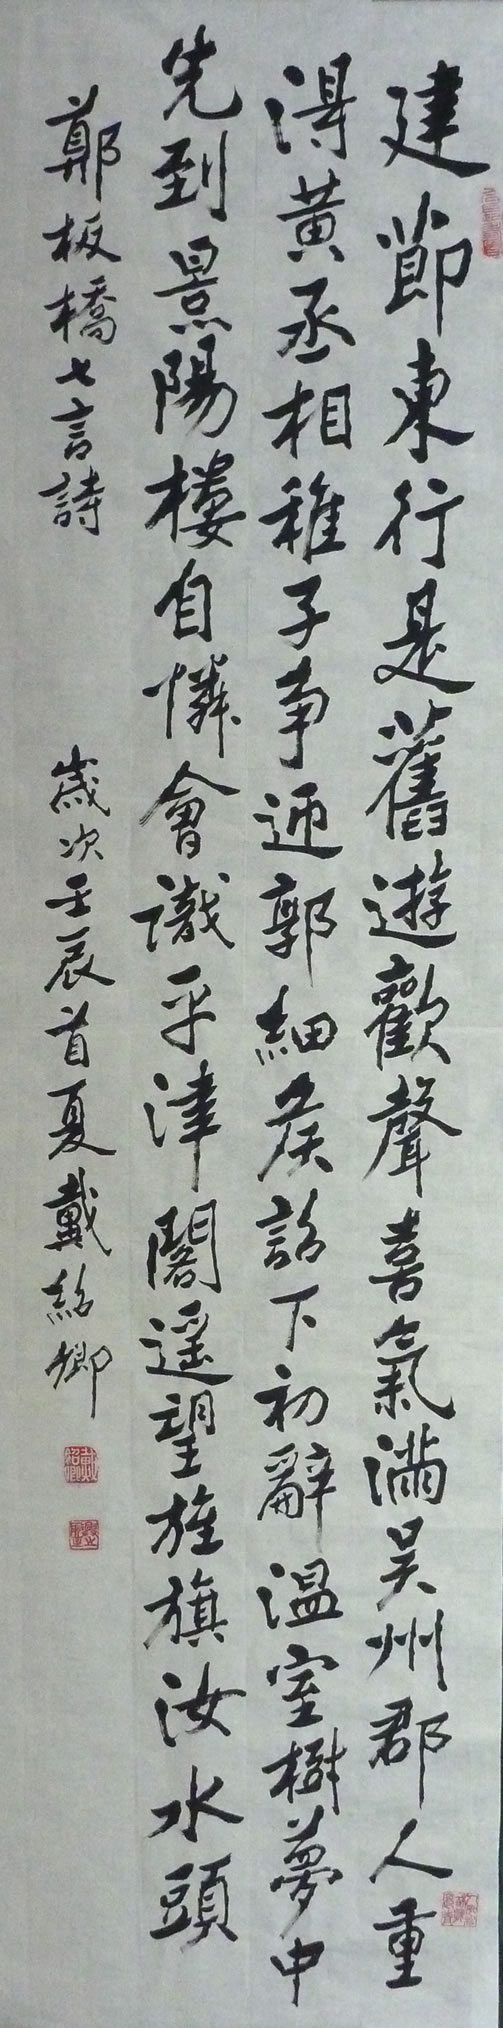 建節東行是舊遊歡聲喜氣滿吳州郡人重
得黃丞相稚子爭迎郭細侯詔下初辭溫室樹夢中
先到景陽樓自憐會識平津閣遙望旌旗汝水頭
鄭板橋七言詩
歲次壬辰首夏戴紹卿